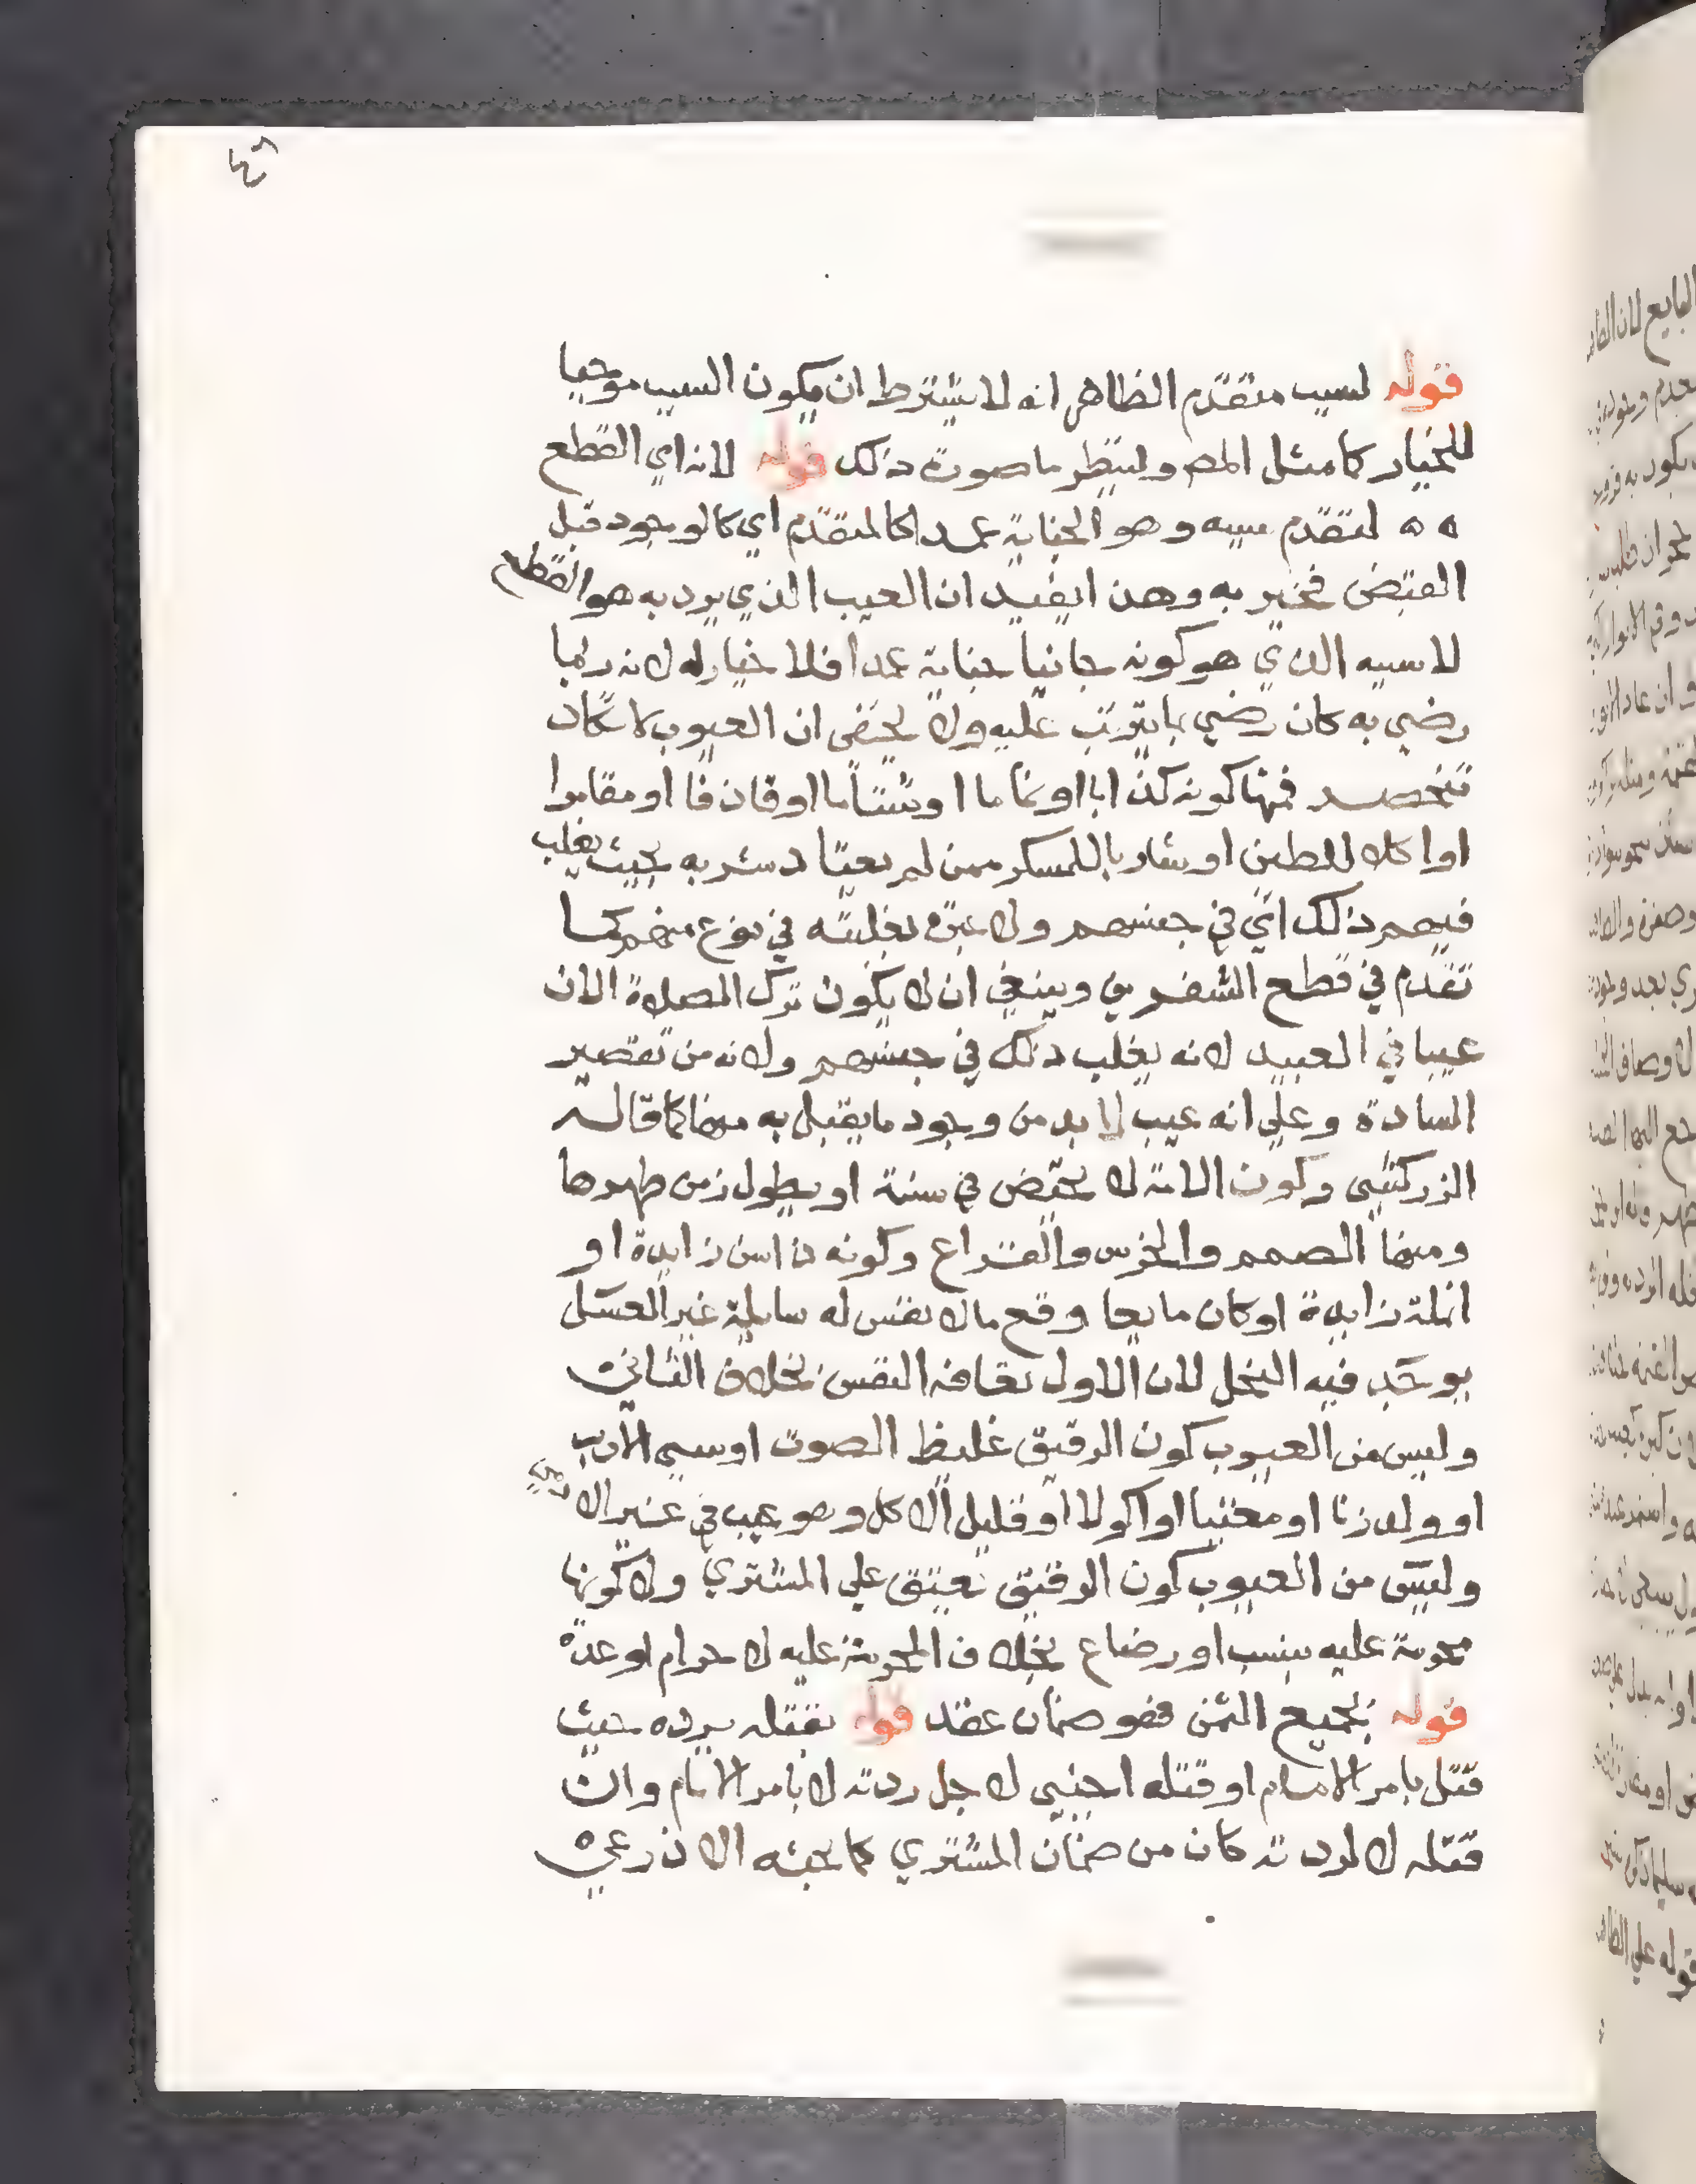 ٤٦
قوله لسبب متقدم الظاهر انه لا يشترط ان يكون السبب موجبا
للخيار كا مثل المص ولينظر ما صورة ذلك قوله لانه اي القطع
ه ه لتقدم سببه وهو الجناية عمدا كالمتقدم اي كالوجود قبل
القبض فخير به وهذا يفيد ان العيب الذي يرد به هو القطع
لا سببه الذي هو كونه جانيا جناية عمدا فلا خيار له لانه لما
رضي به كان رضي بما يترتب عليه ولا يخفى ان العيوب لا تكاد
تنحصر فمنها كونه كذابا او نماما او شتاما او قاذفا او مقامرا
او اكلا للطين او شاربا للمسكر ممن لم يعتاد شربه بحيث يغلب
فيهم ذلك اي في جنسهم ولا عبرة بغلبته في نوع منهم كما
تقدم في قطع الشفرين وينبغي ان لا يكون ترك الصلاة الان
عيبا في العبيد لانه يغلب ذلك في جنسهم ولانه من تقصير
السادة وعلى انه عيب لا بد من وجود ما يقتل به منها كما قاله
الزركشي وكون الامة لا تحيض في سنة او يطول زمن طهرها
ومنها الصمم والخرس والقراع وكونه ذا سن زايدة او
انملة زايدة او كان مايعا وقع ما لا نفس له سايلة غير العسل
يوجد فيه النحل لان الاول تعافه النفس بخلاف الثاني
وليس من العيوب كون الرقيق غليظ الصوت او سيى الادب
او ولد زنا او مغنيا او اكولا او قليل الاكل وهو عيب في غير الادمي
وليس من العيوب كون الرقيق يعتق على المشتري ولا كونها
محرمة عليه بنسب او رضاع بخلاف المحرمة عليه لاحرام او عدة
قوله بجميع الثمن فهو ضمان عقد قوله بقتله بردة حيث
قتل بامر الامام او قتله اجنبي لاجل ردته لا بامر الامام وان
قتله لا لردته كان من ضمان المشتري كما بحثه الاذرعي